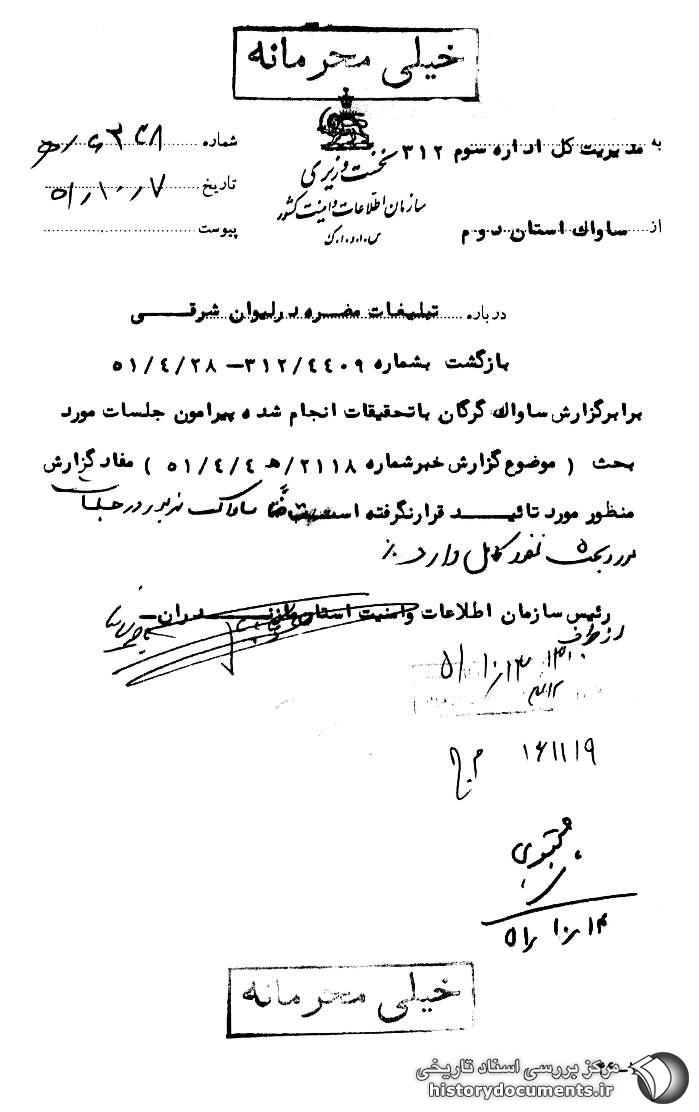 خیلی محرمانه
به مدیریت کل اداره سوم ۳۱۲
از ساواک استان دوم
نخست وزیری
سازمان اطلاعات و امنیت کشور
س.ا.و.ا.ک
شماره
تاریخ ۵۱٫۱۰٫۷
پیوست
درباره تبلیغات مضره درلیوان شرقی
بازگشت بشماره ۳۱۲/۴۴۰۹ – ۵۱/۴/۲۸
برابرگزارش ساواک گرگان باتحقیقات انجام شده پیرامون جلسات مورد
بحث ( موضوع گزارش خبرشماره ۲۱۱۸/ﻫ ۵۱/۴/۴ ) مفاد گزارش
منظور مورد تائید قرارنگرفته است ساواک در جلسات
مورد بحث نفوذ کامل دارد ٪
رئیس سازمان اطلاعات و امنیت استان مازندران–
از طرف
۵۱٫۱۰٫۱۳
۱۶۱۱۱۹
۵۱٫۱۰٫۱۴
خیلی محرمانه
مرکز بررسی اسناد تاریخی
historydocuments.ir